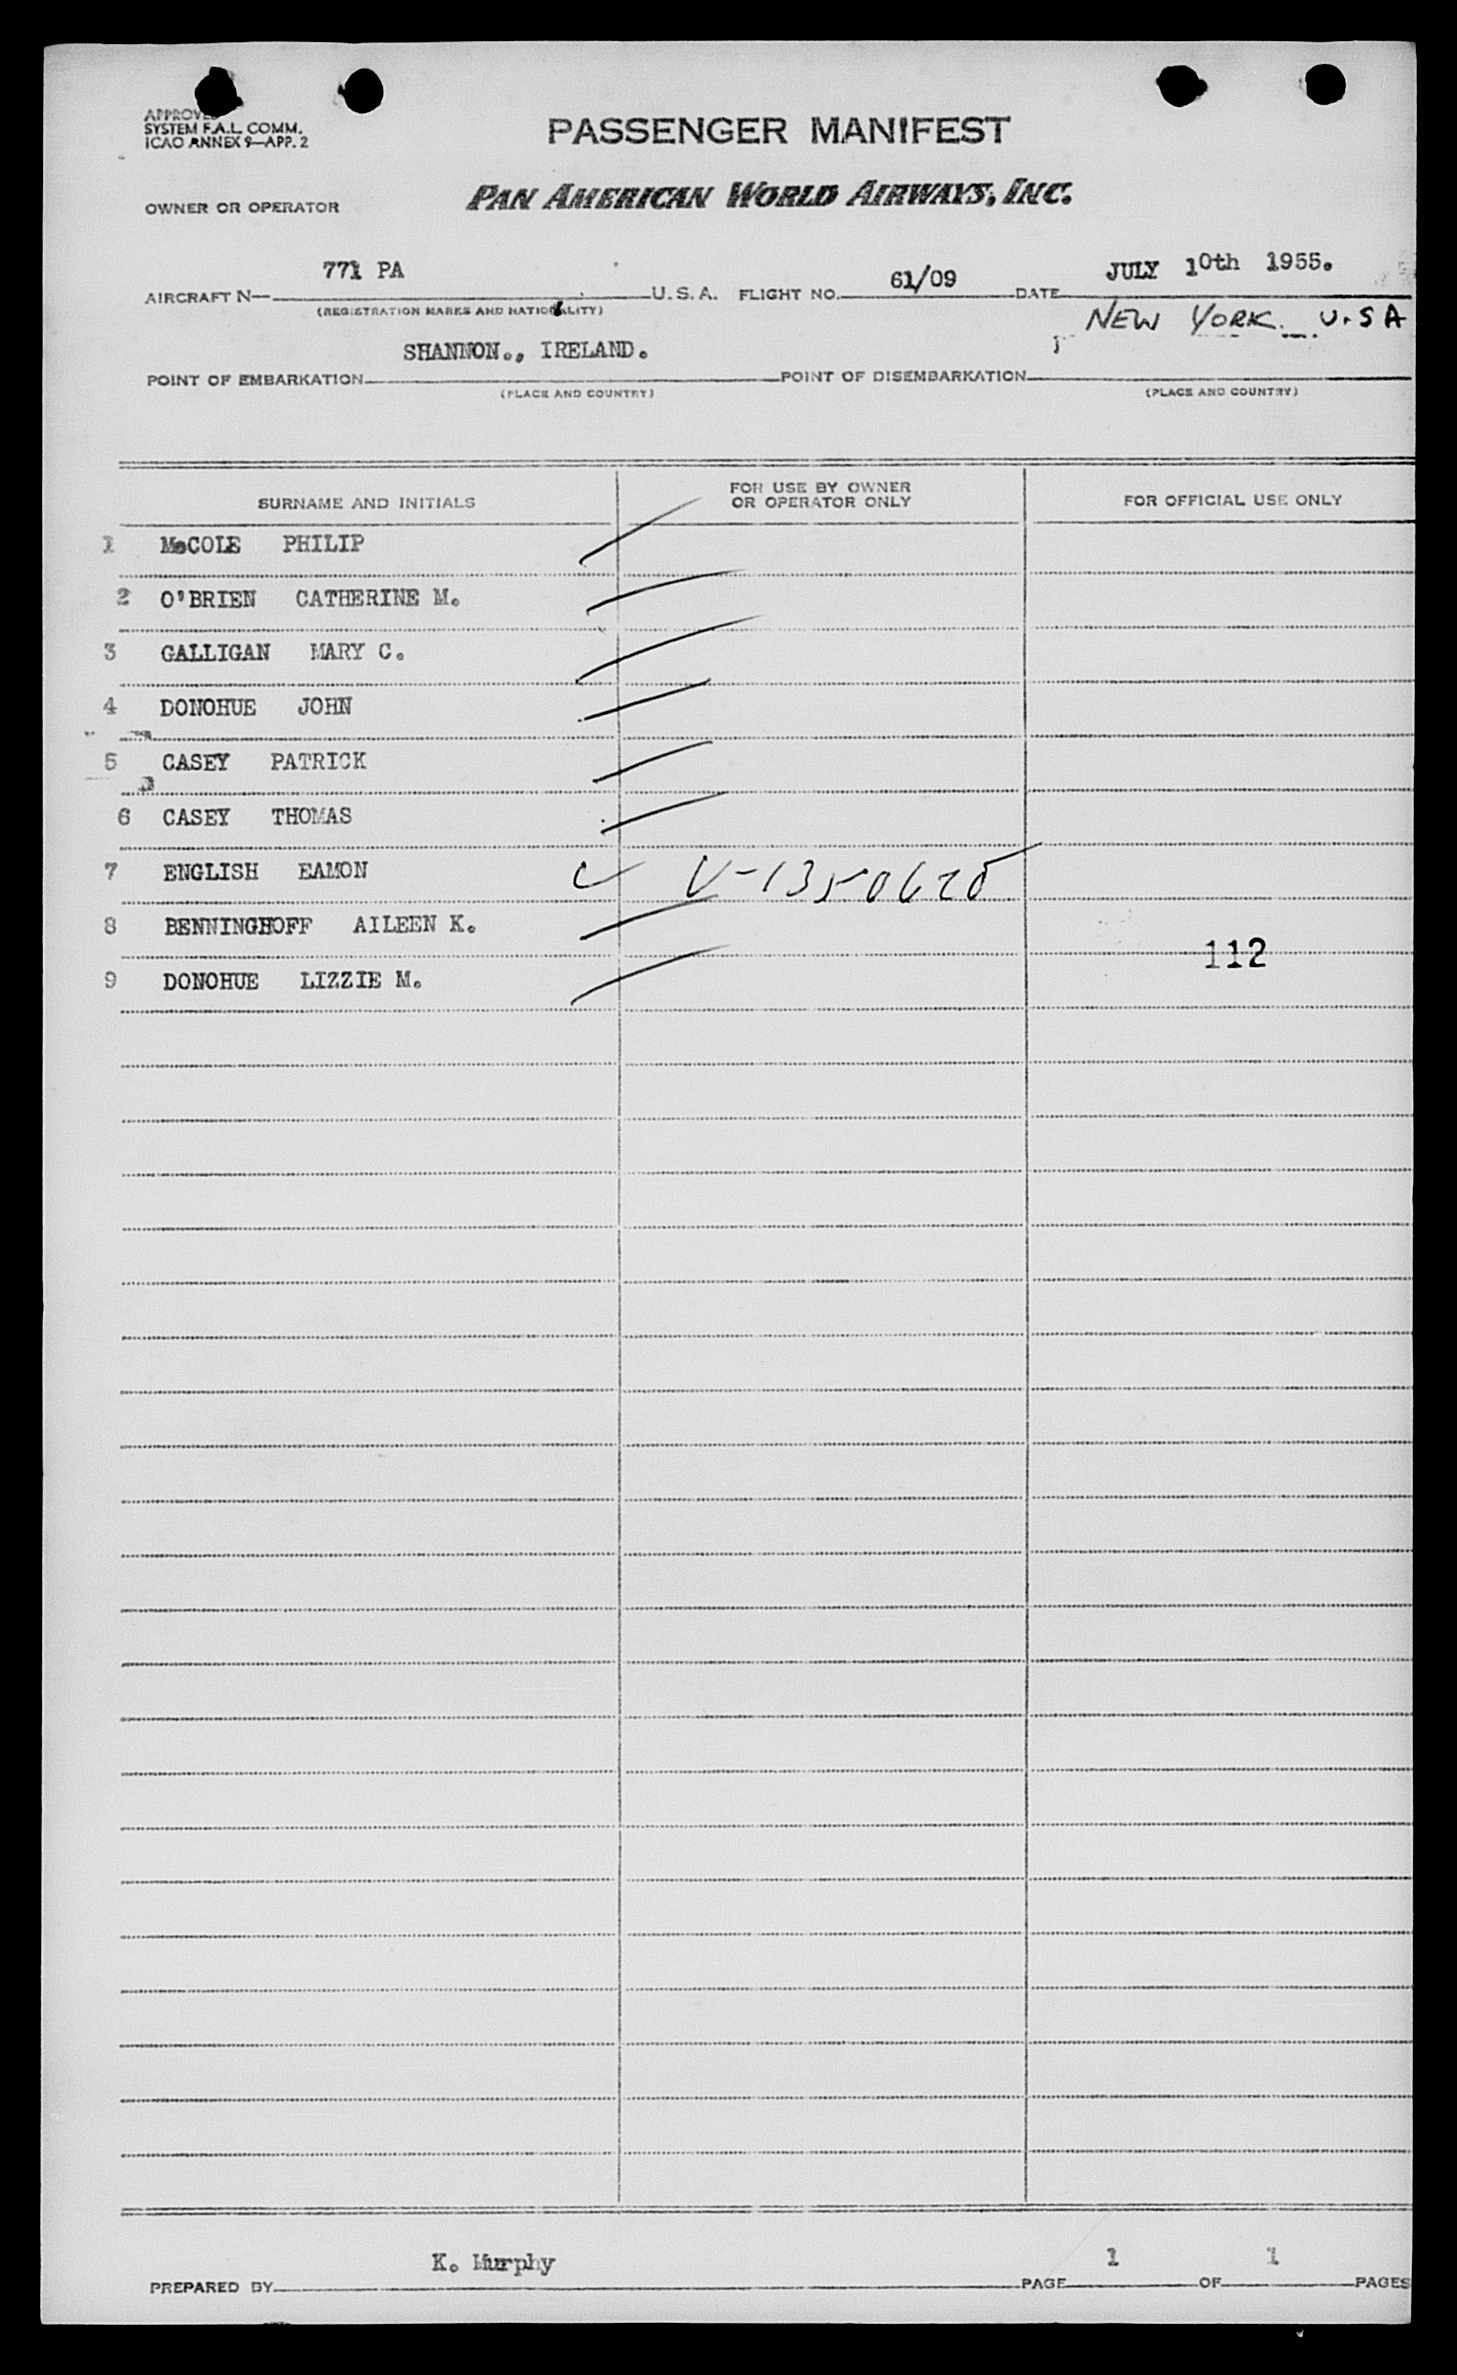 APPROVED
SYSTEM F.A.L. COMM.
ICAO ANNEX 9—APP. 2
PASSENGER MANIFEST
OWNER OR OPERATOR PAN AMERICAN WORLD AIRWAYS, INC.
771 PA 61/09 JULY 10th 1955.
AIRCRAFT N— U.S.A. FLIGHT NO. DATE
(REGISTRATION MARKS AND NATIONALITY)
NEW YORK. U.SA
SHANNON., IRELAND.
POINT OF EMBARKATION POINT OF DISEMBARKATION
(PLACE AND COUNTRY) (PLACE AND COUNTRY)
SURNAME AND INITIALS FOR USE BY OWNER OR OPERATOR ONLY FOR OFFICIAL USE ONLY
1 McCOLE PHILIP
2 O'BRIEN CATHERINE M.
3 GALLIGAN MARY C.
4 DONOHUE JOHN
5 CASEY PATRICK
6 CASEY THOMAS
7 ENGLISH EAMON V-1350620
8 BENNINGHOFF AILEEN K.
112
9 DONOHUE LIZZIE M.
K. Murphy 1 1
PREPARED BY PAGE OF PAGES